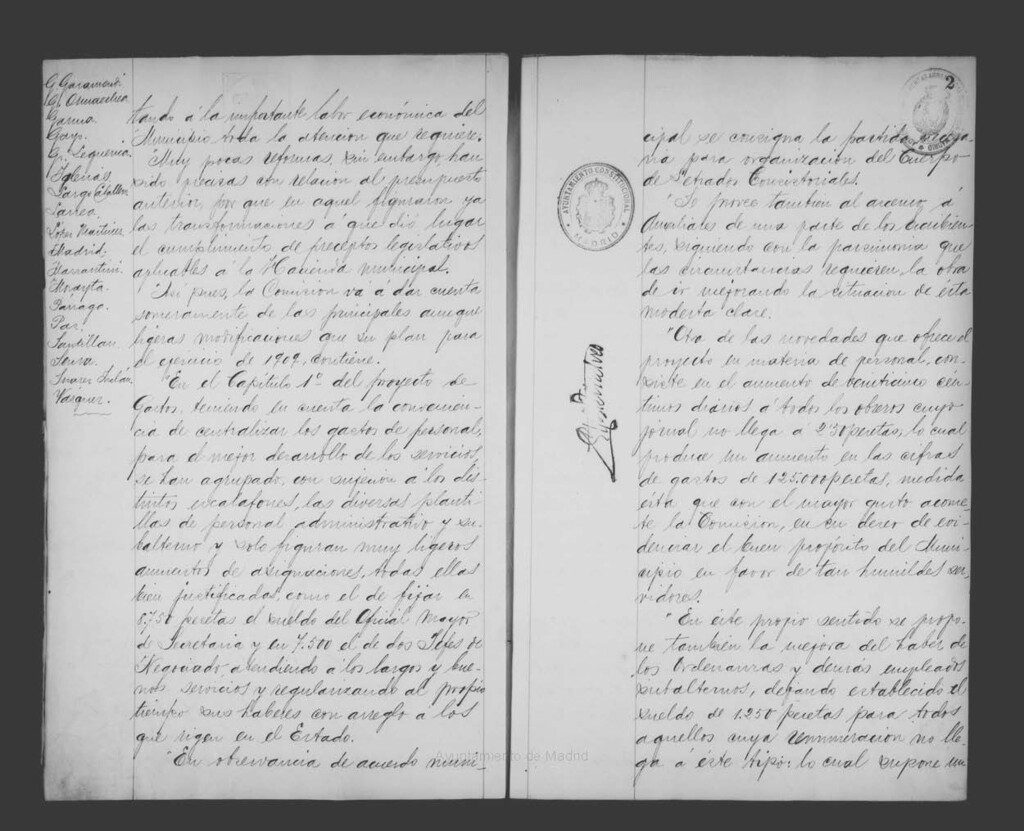 G. Garamendi
G. Ormaechea
Garma
Gayo.
G. Sequeria
Iglesias
Largo Caballero
Larrea.
López Martínez
Madrid.
Marrantini.
Morayta.
Párraga.
Paz.
Santillan.
Serra.
Suarez Inclán.
Vazquez.
tando á la importante labor económica del
Municipio toda la atención que requiere.
"Muy pocas reformas, sin embargo han
sido precisas con relación al presupuesto
anterior, por que en aquel figuraron ya
las transformaciones á que dió lugar
el cumplimiento de preceptos legislativos
aplicables á la Hacienda municipal.
"Así pues, la Comisión vá á dar cuenta
someramente de las principales aunque
ligeras modificaciones que su plan para
el ejercicio de 1909, contiene.
"En el Capítulo 1º del proyecto de
Gastos, teniendo en cuenta la convenien-
cia de centralizar los gastos de personal,
para el mejor desarrollo de los servicios,
se han agrupado, con sujeción á los dis-
tintos escalafones, las diversas planti-
llas de personal administrativo y su-
balterno y solo figuran muy ligeros
aumentos de asignaciones, todas ellas
bien justificadas, como el de fijar en
8.750 pesetas el sueldo del Oficial Mayor
de Secretaria y en 7.500 el de dos Jefes de
Negociado, atendiendo á los largos y bue-
nos servicios y regularizando al propio
tiempo sus haberes con arreglo a los
que rigen en el Estado.
"En observancia de acuerdo muni-
Ayuntamiento de Madrid
AYUNTAMIENTO CONSTITUCIONAL
MADRID
2
cipal se consigna la partida necesa-
ria para organización del Cuerpo
de Letrados Consistoriales.
"Se provee también al ascenso á
Auxiliares de una parte de los escribien-
tes, siguiendo con la parsimonia que
las circunstancias requieren, la obra
de ir mejorando la situación de ésta
modesta clase.
"Otra de las novedades que ofrece el
proyecto en materia de personal, con-
siste en el aumento de veinticinco cén-
timos diarios á todos los obreros cuyo
jornal no llega á 2'50 pesetas, lo cual
produce un aumento en las cifras
de gastos de 125.000 pesetas, medida
ésta que con el mayor gusto acome-
te la Comisión, en su deseo de evi-
denciar el buen propósito del Muni-
cipio en favor de tan humildes ser-
vidores.
"En éste propio sentido se propo-
ne también la mejora del haber de
los Ordenanzas y demás empleados
subalternos, dejando establecido el
sueldo de 1.250 pesetas para todos
aquellos cuya remuneración no lle-
ga á éste tipo: lo cual supone un